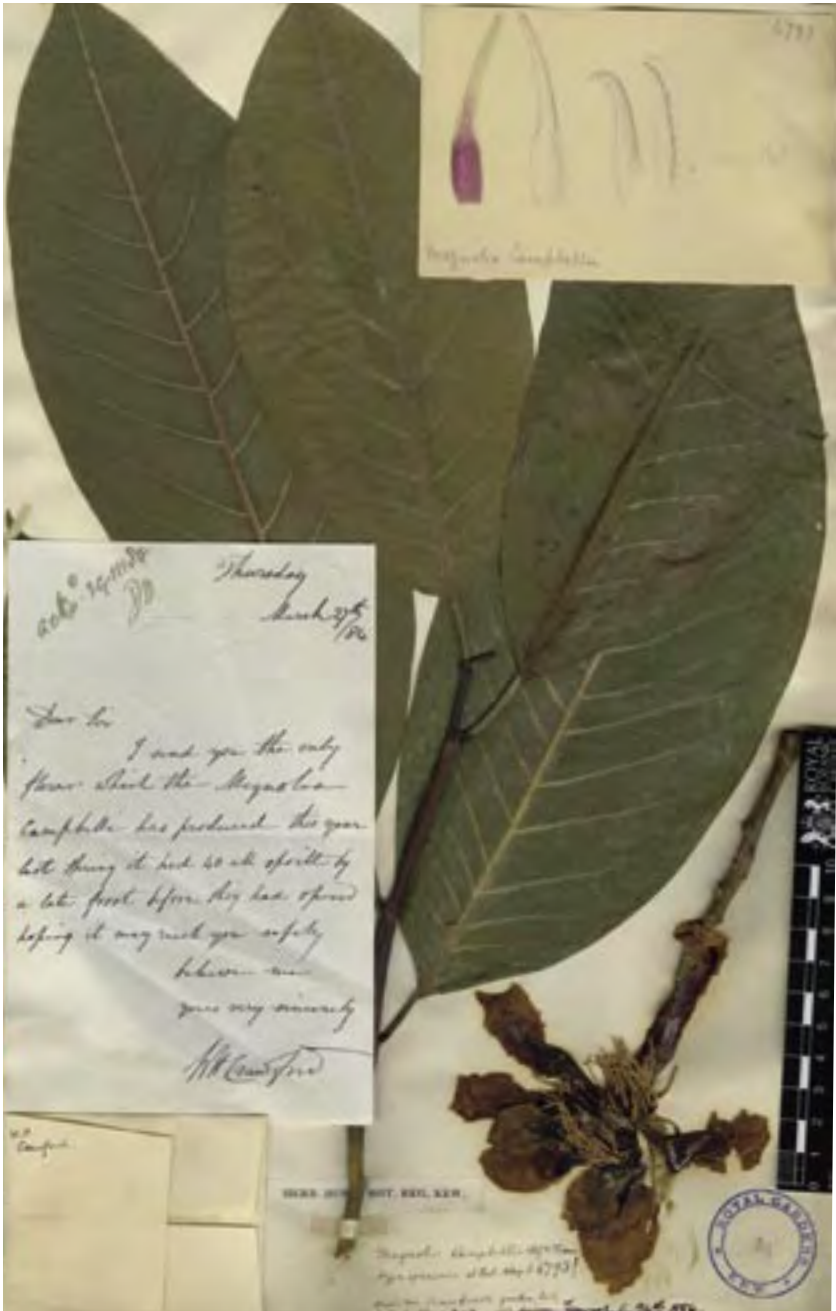 6793
Magnolia Campbellii
ackd 29.III.84
Thursday
March 27th
/84
Dear Sir
I send you the only
flower which the Magnolia
Campbellii has produced this year
last spring it had 40 all spoilt by
a late frost before they had opened
hoping it may reach you safely
believe me
yours very sincerely
W H Crawford
Crawford
HERB. HORT. BOT. REG. KEW.
Magnolia Campbellii
6793!
ROYAL GARDENS
KEW
ROYAL
0 1 2 3 4 5 6 7 8